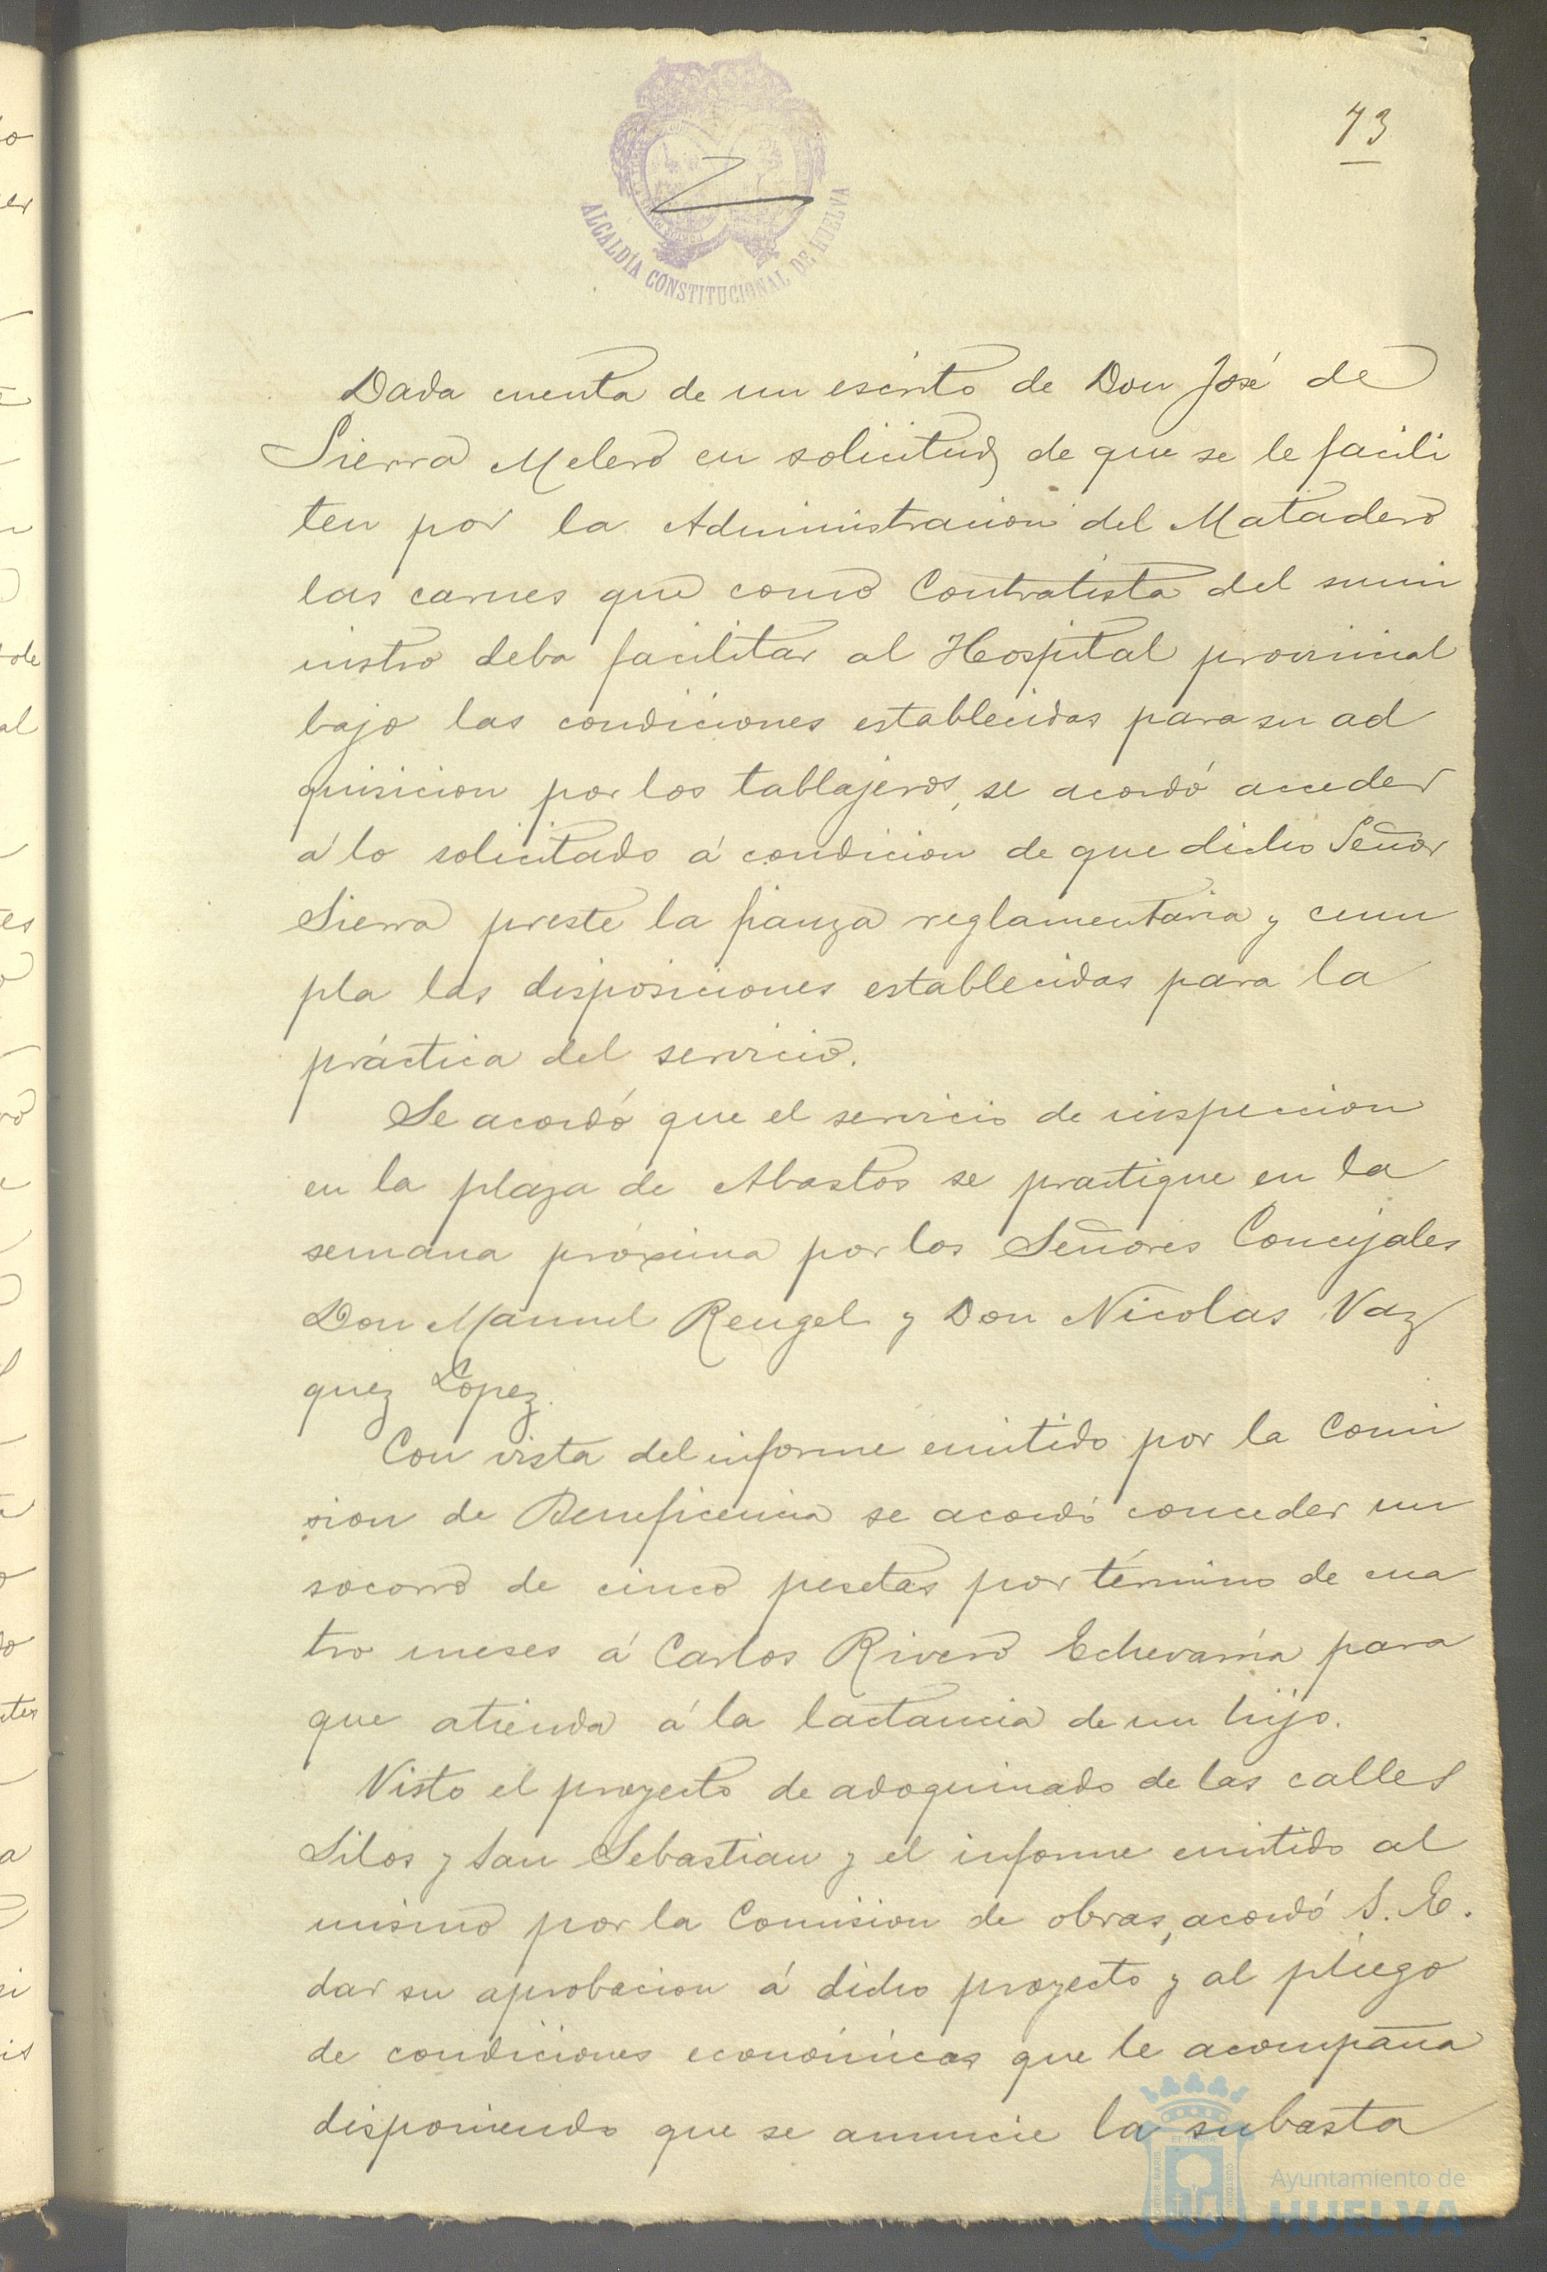 73
ALCALDÍA CONSTITUCIONAL DE HUELVA
Dada cuenta de un escrito de Don José de
Sierra Melero en solicitud de que se le facili
ten por la Administracion del Matadero
las carnes que como Contratista del sumi
nistro deba facilitar al Hospital provincial
bajo las condiciones establecidas para su ad
quisicion por los tablajeros, se acordó acceder
á lo solicitado á condicion de que dicho Señor
Sierra preste la fianza reglamentaria y cum
pla las disposiciones establecidas para la
práctica del servicio.
Se acordó que el servicio de inspeccion
en la plaza de Abastos se practique en la
semana próxima por los Señores Concejales
Don Manuel Rengel y Don Nicolas Vaz
quez Lopez.
Con vista del informe emitido por la Comi
sion de Beneficencia se acordó conceder un
socorro de cinco pesetas por término de cua
tro meses á Carlos Rivero Echevarria para
que atienda á la lactancia de un hijo.
Visto el proyecto de adoquinado de las calles
Silos y San Sebastian y el informe emitido al
mismo por la Comision de obras, acordó S. E.
dar su aprobacion á dicho proyecto y al pliego
de condiciones económicas que le acompaña
disponiendo que se anuncie la subasta
Ayuntamiento de
HUELVA